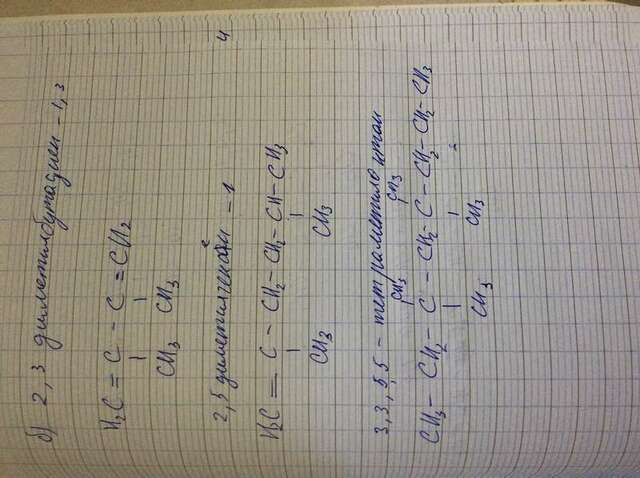 б) 2, 3 диметилбутадиен - 1,3
H2C = C - C = CH2
CH3 CH3
2, 5 диметилгексен - 1
H2C = C - CH2 - CH2 - CH - CH3
CH3 CH3
3, 3, 5, 5 - тетраметилоктан
CH3 CH3
CH3 - CH2 - C - CH2 - C - CH2 - CH2 - CH3
CH3 CH3